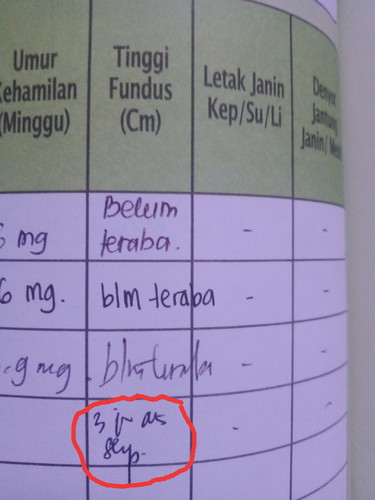 Umur
Kehamilan
(Minggu)
Tinggi
Fundus
(Cm)
Letak Janin
Kep/Su/Li
Denyut
Jantung
Janin/
6 mg
Belum
teraba.
-
-
6 mg.
blm teraba
-
-
g mg
blm teraba
-
-
3 jr ats
-
-